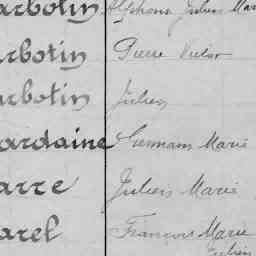 arbotin Alphons Julien Mar
arbotin Pierre Victor
arbotin Julien
ardaine Germain Marie
arre Julien Marie
arel François Marie
Julien